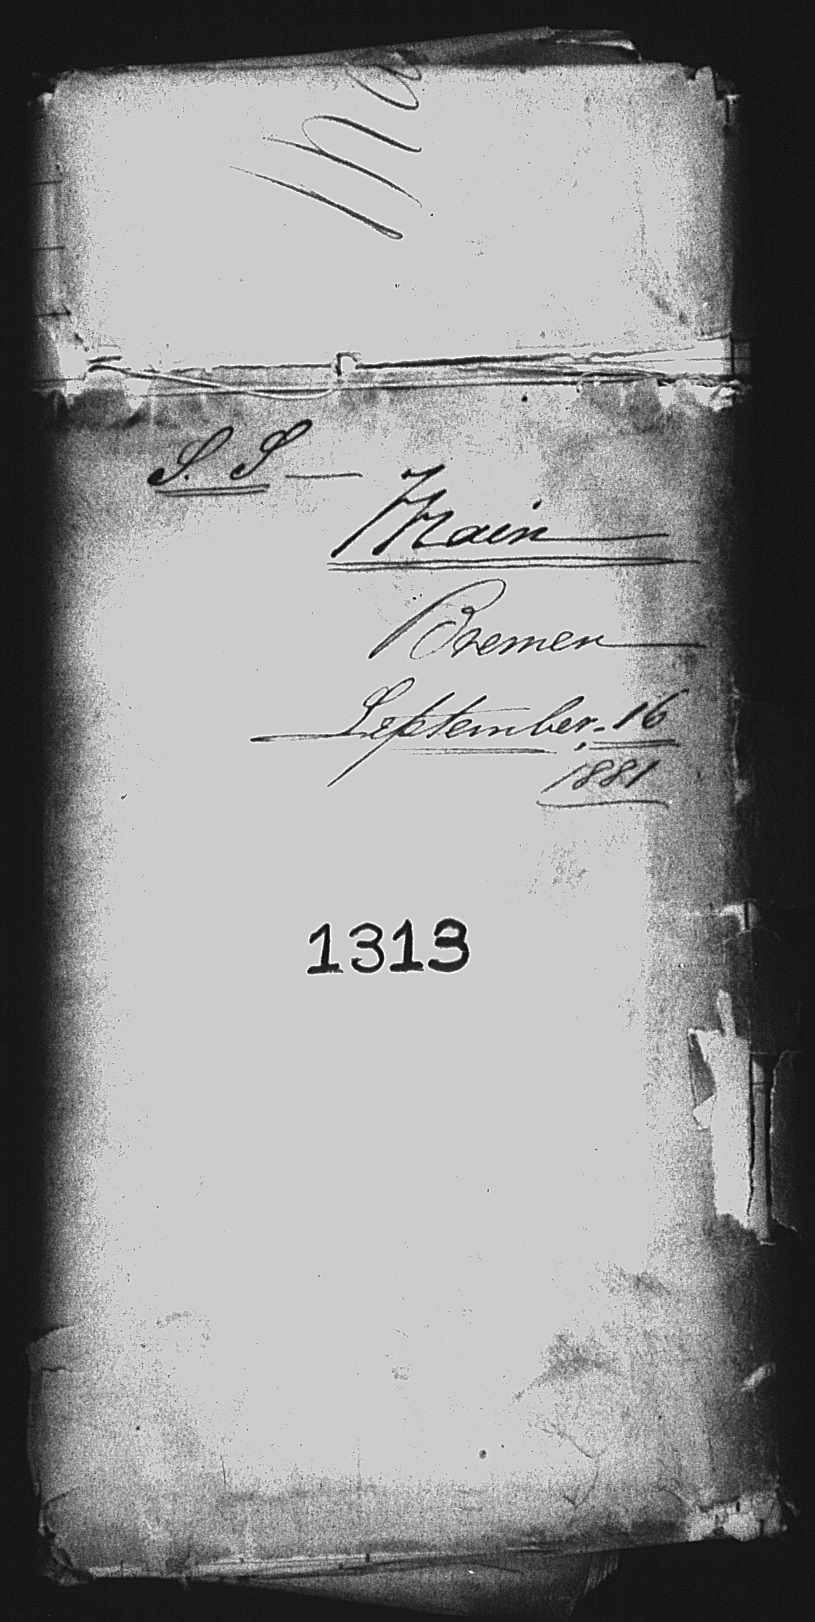 Ma
S. S —
Main
Bremen
September. 16
1881
1313